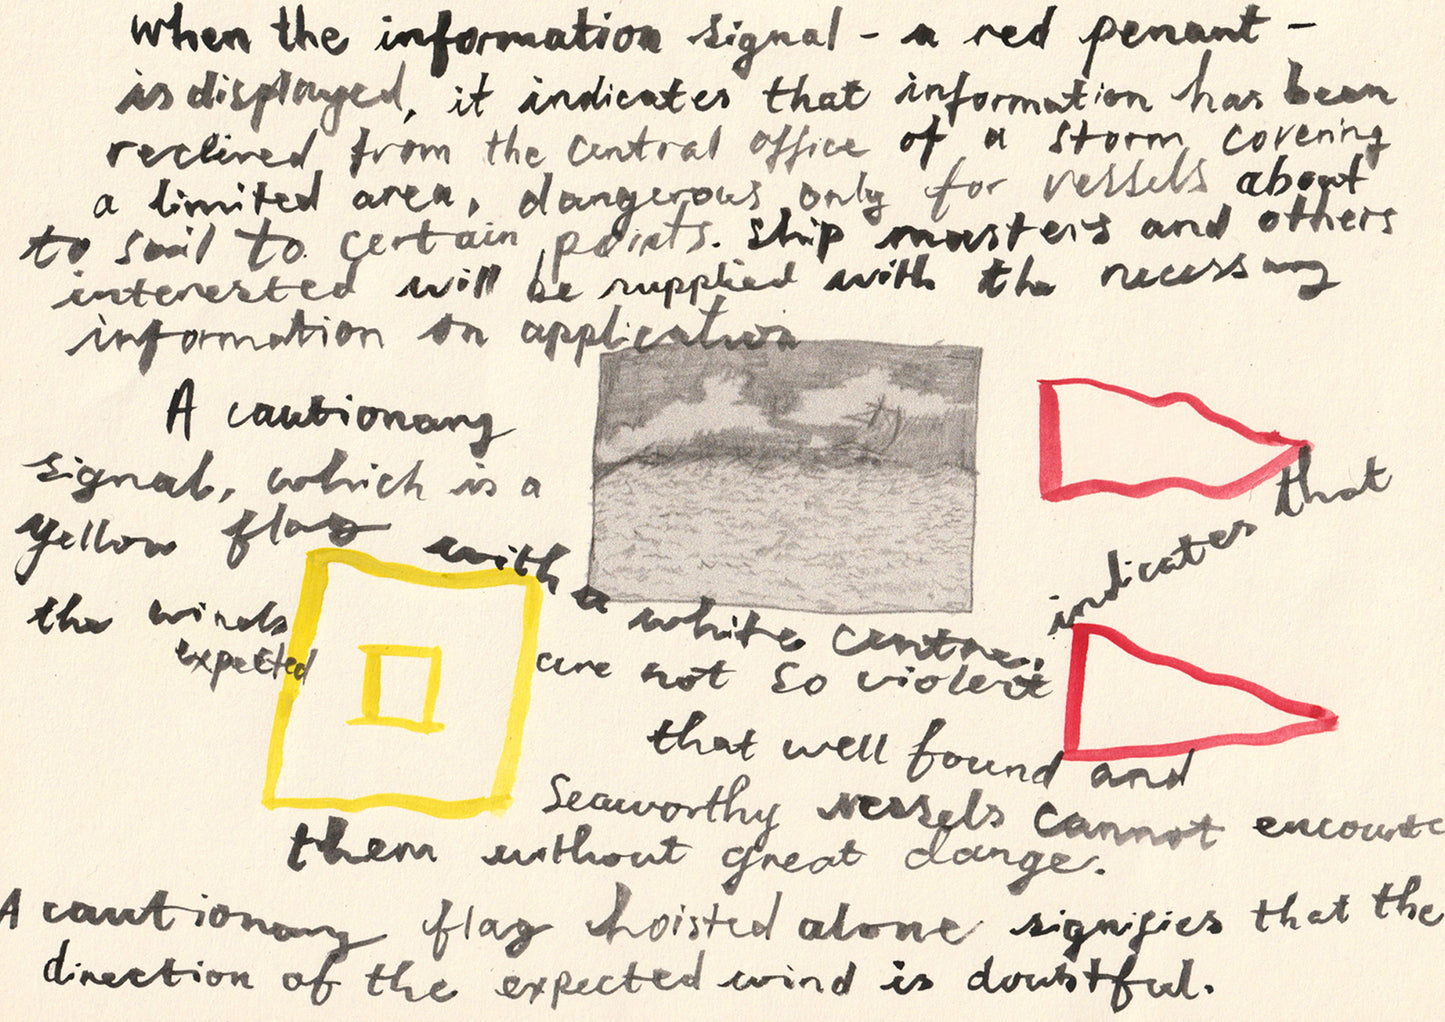 when the information signal - a red penant -
is displayed, it indicates that information has been
recieved from the central office of a storm covering
a limited area, dangerous only for vessels about
to sail to certain points. Ship masters and others
interested will be supplied with the necessary
information on application
A cautionary
signal, which is a
yellow flag with a white centre, indicates that
the winds
expected are not so violent
that well found and
Seaworthy vessels cannot encounte
them without great dange.
A cautionary flag hoisted alone signifies that the
direction of the expected wind is doubtful.